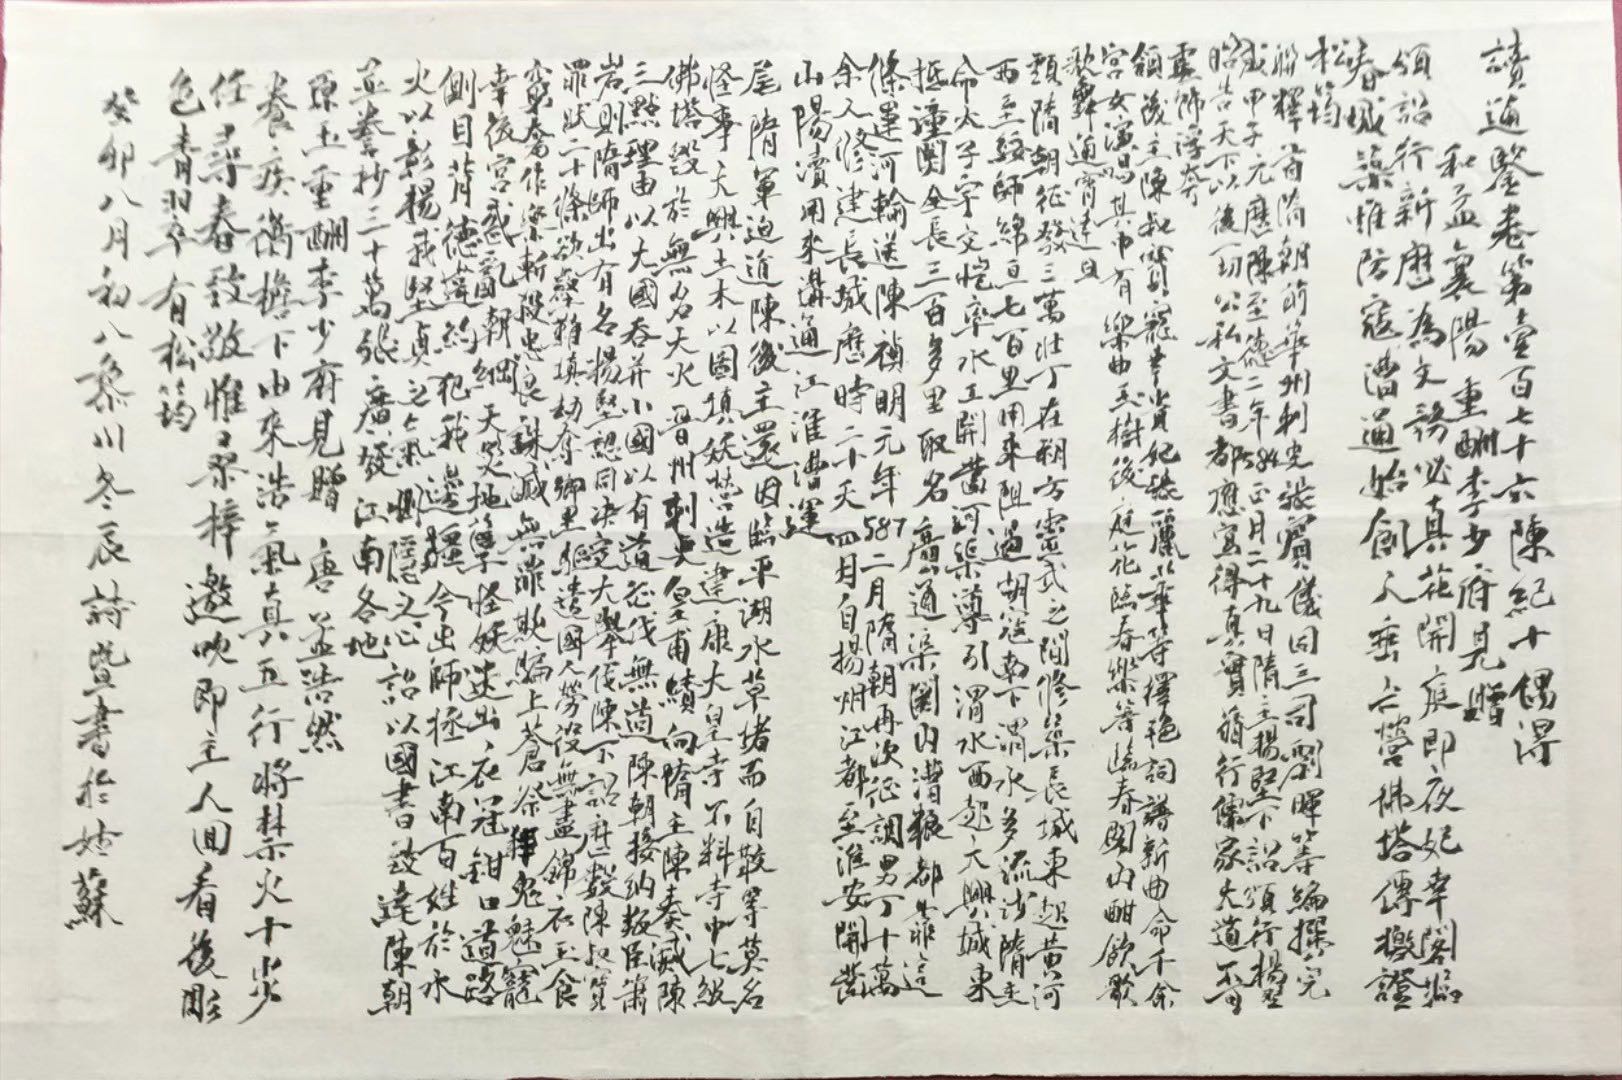 讀通鑒卷第壹百七十六陳紀十偶得
和孟襄陽重酬李少府見贈
頒詔行新曆為文務必真花開庭即夜妃幸閣臨
春城築惟防寇漕通始創人垂亡營佛塔傳檄證
松筠
聯釋首隋朝前華州刺史張賓儀同三司劉暉等編撰完
成甲子元曆陳至德二年584正月二十九日隋主楊堅下詔頒行楊堅
昭告天下以後一切公私文書都應寫得真實循行儒家大道不可
靈飾浮夸
領後主陳叔寶寵幸貴妃張麗華等擇艷詞譜新曲命千余
宮女演唱其中有樂曲玉樹後庭花臨春樂等臨春閣內酣飲歌
歌舞通宵達旦
頸隋朝征發三萬壯丁在朔方靈武之間修築長城東起黃河
西至綏師綿亘七百里用來阻遏胡寇南下渭水多流沙隋主
命太子宇文愷率水工開鑿河渠導引渭水西起大興城東
抵潼關全長三百多里取名廣通渠關內漕糧都靠這
條運河輸送陳禎明元年587二月隋朝再次征調男丁十萬
余人修建長城歷時二十天四月自揚州江都至淮安開鑿
山陽瀆用來溝通江淮漕運
尾隋軍迫近陳後主還因臨平湖水草堵而自散等莫名
怪事大興土木以圖填妖禁造建康大皇寺不料寺中七級
佛塔毀於無名天火晉州刺史皇甫績向隋主陳奏滅陳
三點理由以大國吞并小國以有道征伐無道陳朝接納叛臣蕭
岩則隋師出有名楊堅認同決定大舉伐陳下詔歷數陳叔寶
罪狀二十條欲壑難填劫奪鄉里繼遣國人勞役無盡錦衣玉食
窮奢作樂斬段忠良誅滅無罪欺騙上蒼祭拜鬼魅寵
幸後宮惑亂朝綱天災地孽怪妖迭出衣冠鉗口道路
側目背德違約犯我邊疆今出師拯江南百姓於水
火以彰楊我堅貞之氣惻隱之心詔以國書致達陳朝
並謄抄三十萬張廣發江南各地
原玉重酬李少府見贈 唐 孟浩然
養疾衡檐下由來浩氣真五行將禁火十步
任尋春致敬惟桑梓邀歡即主人回看後凋
色青翠有松筠
癸卯八月初八黎川冬辰詩暨書於姑蘇